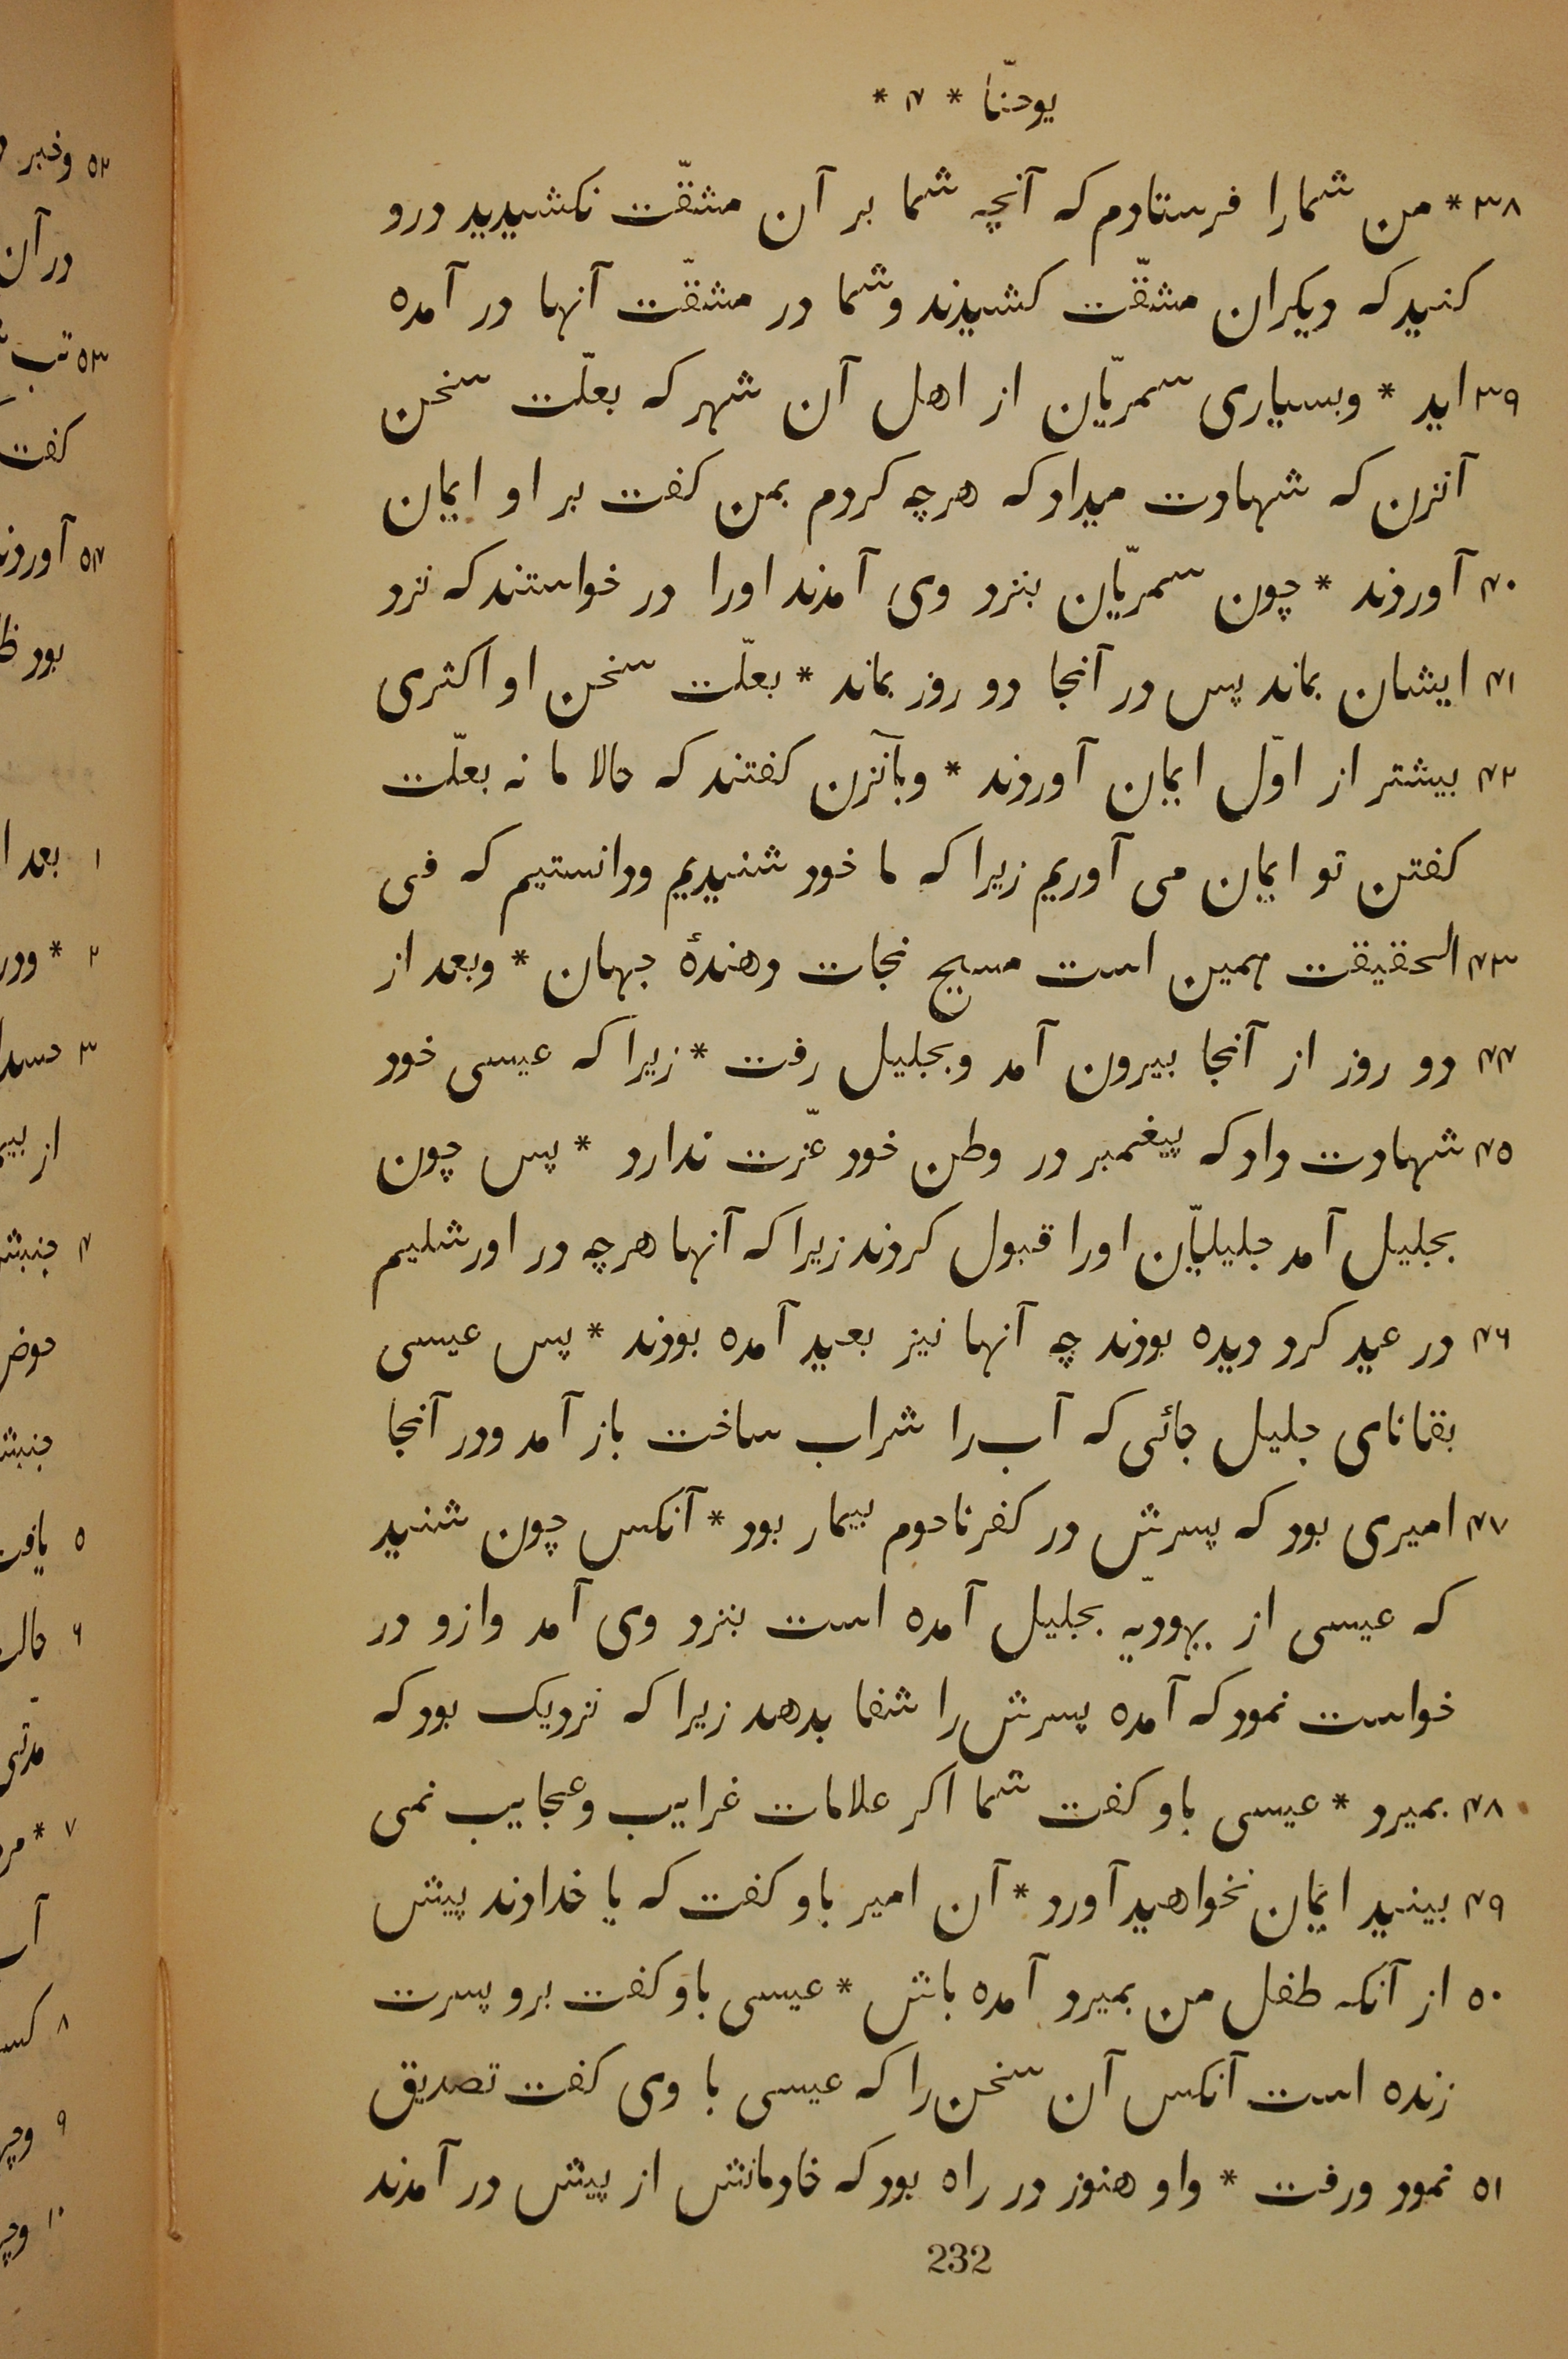 یوحنّا * ۴ *
۳۸ * من شمارا فرستادم که آنچه شما بر آن مشقّت نکشیدید درو
کنید که دیکران مشقّت کشیدند وشما در مشقّت آنها در آمده
۳۹ اید * وبسیاری سمریّان از اهل آن شهر که بعلّت سخن
آنزن که شهادت میداد که هرچه کردم بمن کفت بر او ایمان
۴۰ آوردند * چون سمریّان بنزد وی آمدند اورا در خواستند که نزد
۴۱ ایشان بماند پس در آنجا دو روز بماند * بعلّت سخن او اکثری
۴۲ بیشتر از اوّل ایمان آوردند * وبآنزن کفتند که حالا ما نه بعلّت
کفتن تو ایمان می آوریم زیرا که ما خود شنیدیم ودانستیم که فی
۴۳ الحقیقت همین است مسیح نجات دهندهٔ جهان * وبعد از
۴۴ دو روز از آنجا بیرون آمد وبجلیل رفت * زیرا که عیسی خود
۴۵ شهادت داد که پیغمبر در وطن خود عزّت ندارد * پس چون
بجلیل آمد جلیلیّان اورا قبول کردند زیرا که آنها هرچه در اورشلیم
۴۶ در عید کرد دیده بودند چه آنها نیز بعید آمده بودند * پس عیسی
بقانای جلیل جائی که آب را شراب ساخت باز آمد ودر آنجا
۴۷ امیری بود که پسرش در کفرناحوم بیمار بود * آنکس چون شنید
که عیسی از یهودیّه بجلیل آمده است بنزد وی آمد وازو در
خواست نمود که آمده پسرش را شفا بدهد زیرا که نزدیک بود که
۴۸ بمیرد * عیسی باو کفت شما اکر علامات غرایب وعجایب نمی
۴۹ بینید ایمان نخواهید آورد * آن امیر باو کفت که یا خداوند پیش
۵۰ از آنکه طفل من بمیرد آمده باش * عیسی باو کفت برو پسرت
زنده است آنکس آن سخن را که عیسی با وی کفت تصدیق
۵۱ نمود ورفت * واو هنوز در راه بود که خادمانش از پیش در آمدند
232
۵۲ وخبر
در آن
۵۳
کفت
۵۴
بود
۱ بعد
۲ * ودر
۳
از
۴
حوض
۵
۶
۷ *
۸
۹
۱۰